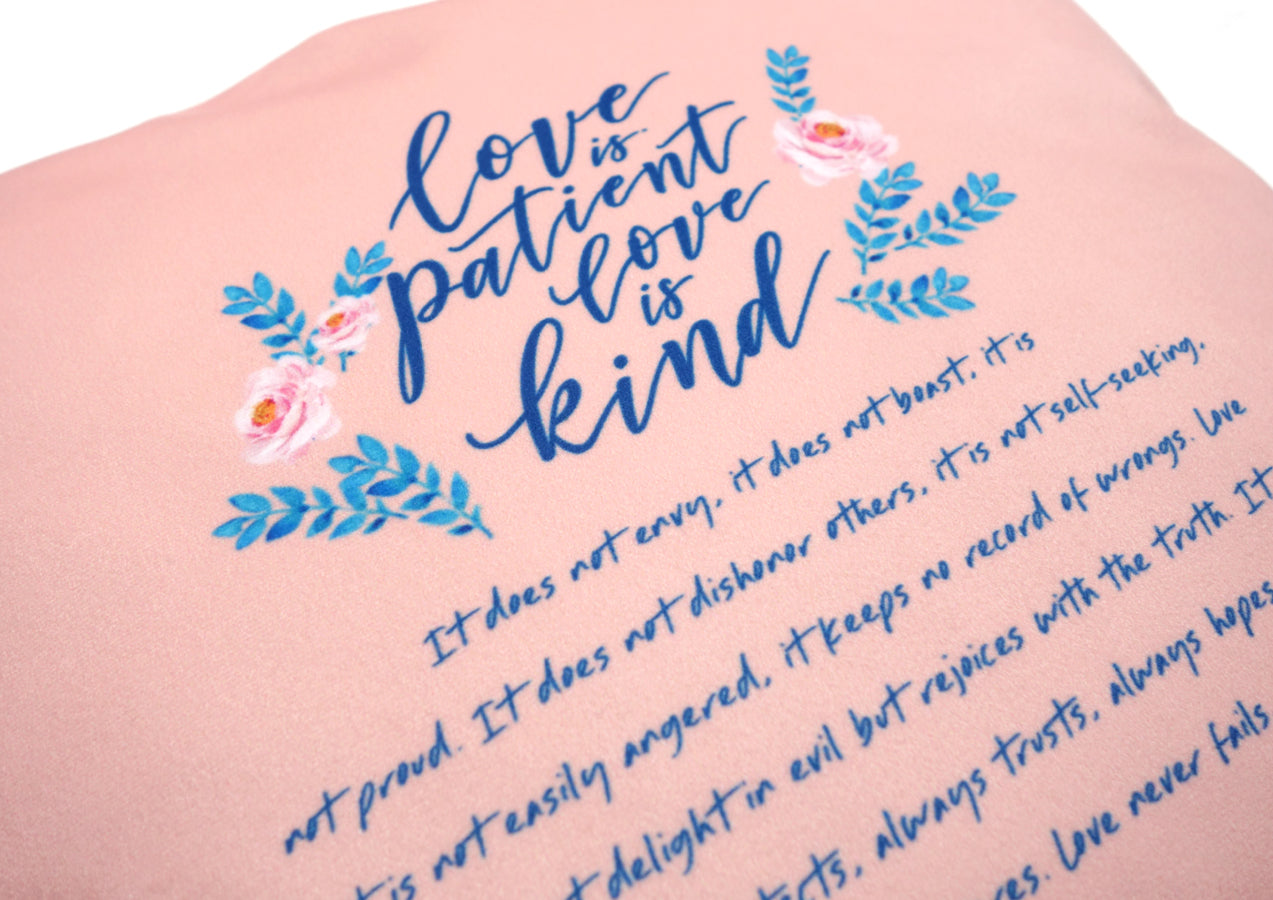 love
is
patient
love
is
kind
It does not envy, it does not boast, it is
not proud. It does not dishonor others, it is not self-seeking,
is not easily angered, it keeps no record of wrongs. Love
delight in evil but rejoices with the truth. It
always trusts, always hopes
Love never fails